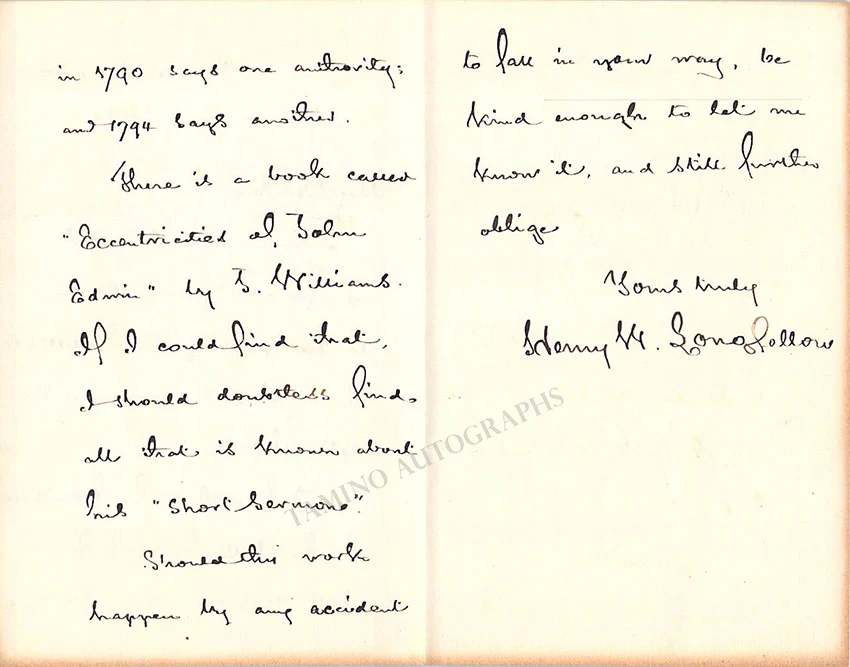 in 1790 says one authority;
and 1794 says another.
There is a book called
"Eccentricities of John
Edwin" by J. Williams.
If I could find that,
I should doubtless find
all that is known about
his "Short Sermons".
Should this work
happen by any accident
to fall in your way, be
kind enough to let me
know it, and still further
oblige
Yours truly
Henry W. Longfellow
TAMINO AUTOGRAPHS